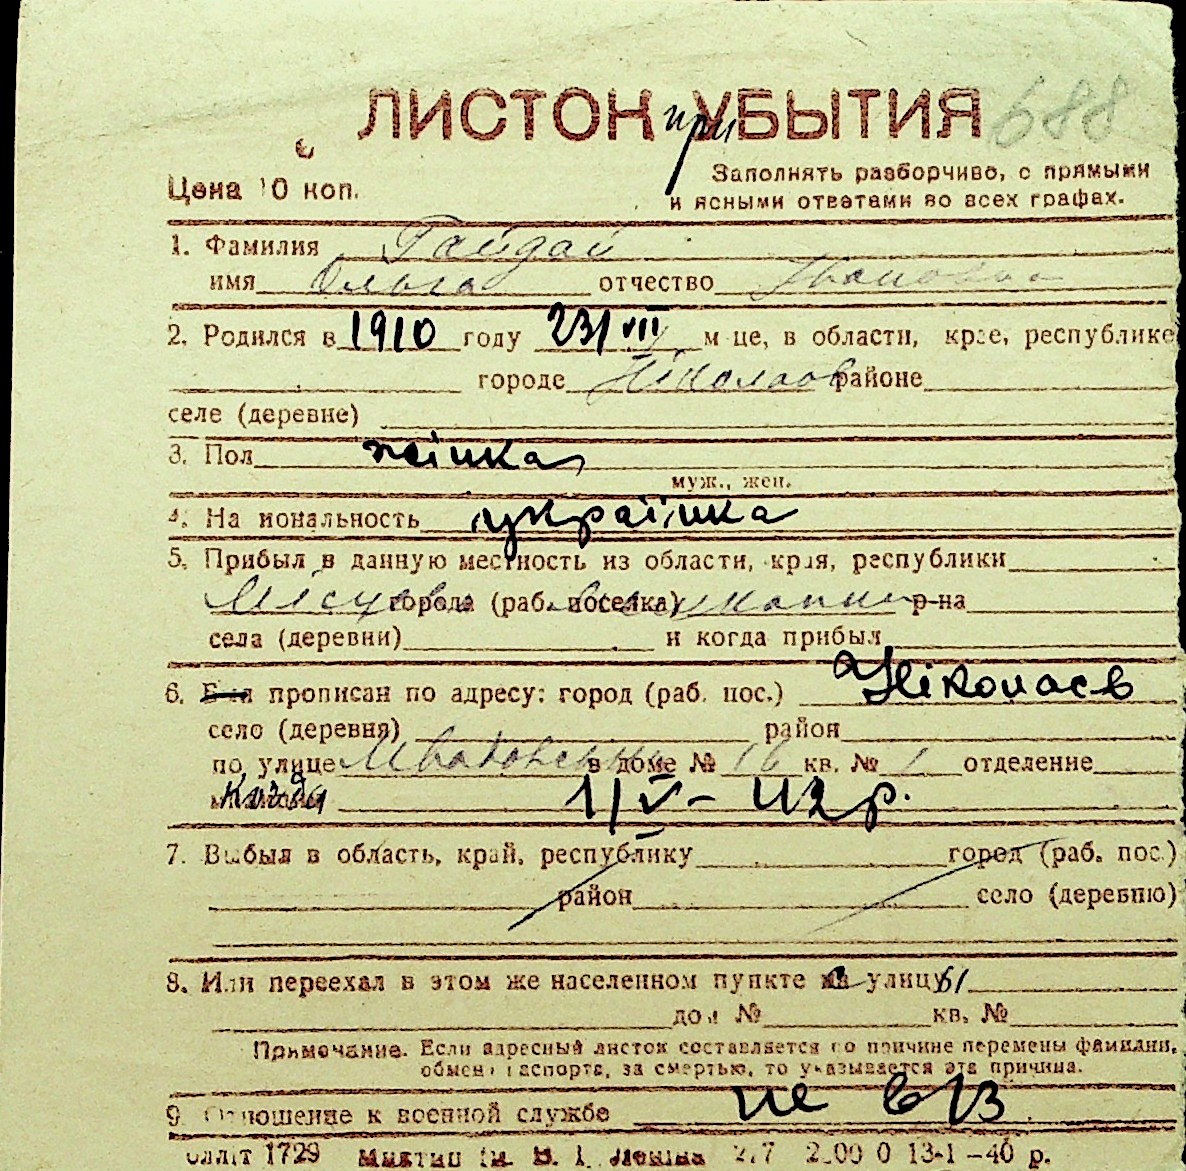 ЛИСТОК при УБЫТИЯ 688
Цена 10 коп.
Заполнять разборчиво, с прямыми
и ясными ответами во всех графах.
1. Фамилия Гайдай
имя Ольга отчество Ивановна
2. Родился в 1910 году 23/VII м-це, в области, крае, республике
городе Ніколаєв районе
селе (деревне)
3. Пол жінка
муж., жен.
4. Национальность українка
5. Прибыл в данную местность из области, края, республики
города (раб. поселка) р-на
села (деревни) и когда прибыл
6. Был прописан по адресу: город (раб. пос.) Ніколаєв
село (деревня) район
по улице в доме № 16 кв. № 1 отделение
милиции 1/V - 42 р.
7. Выбыл в область, край, республику город (раб. пос.)
район село (деревню)
8. Или переехал в этом же населенном пункте на улицу
дом № кв. №
Примечание. Если адресный листок составляется по причине перемены фамилии,
обмена паспорта, за смертью, то указывается эта причина.
9. Отношение к военной службе не в/з
Облліт 1729 им. В. І. Леніна 13-1-40 р.